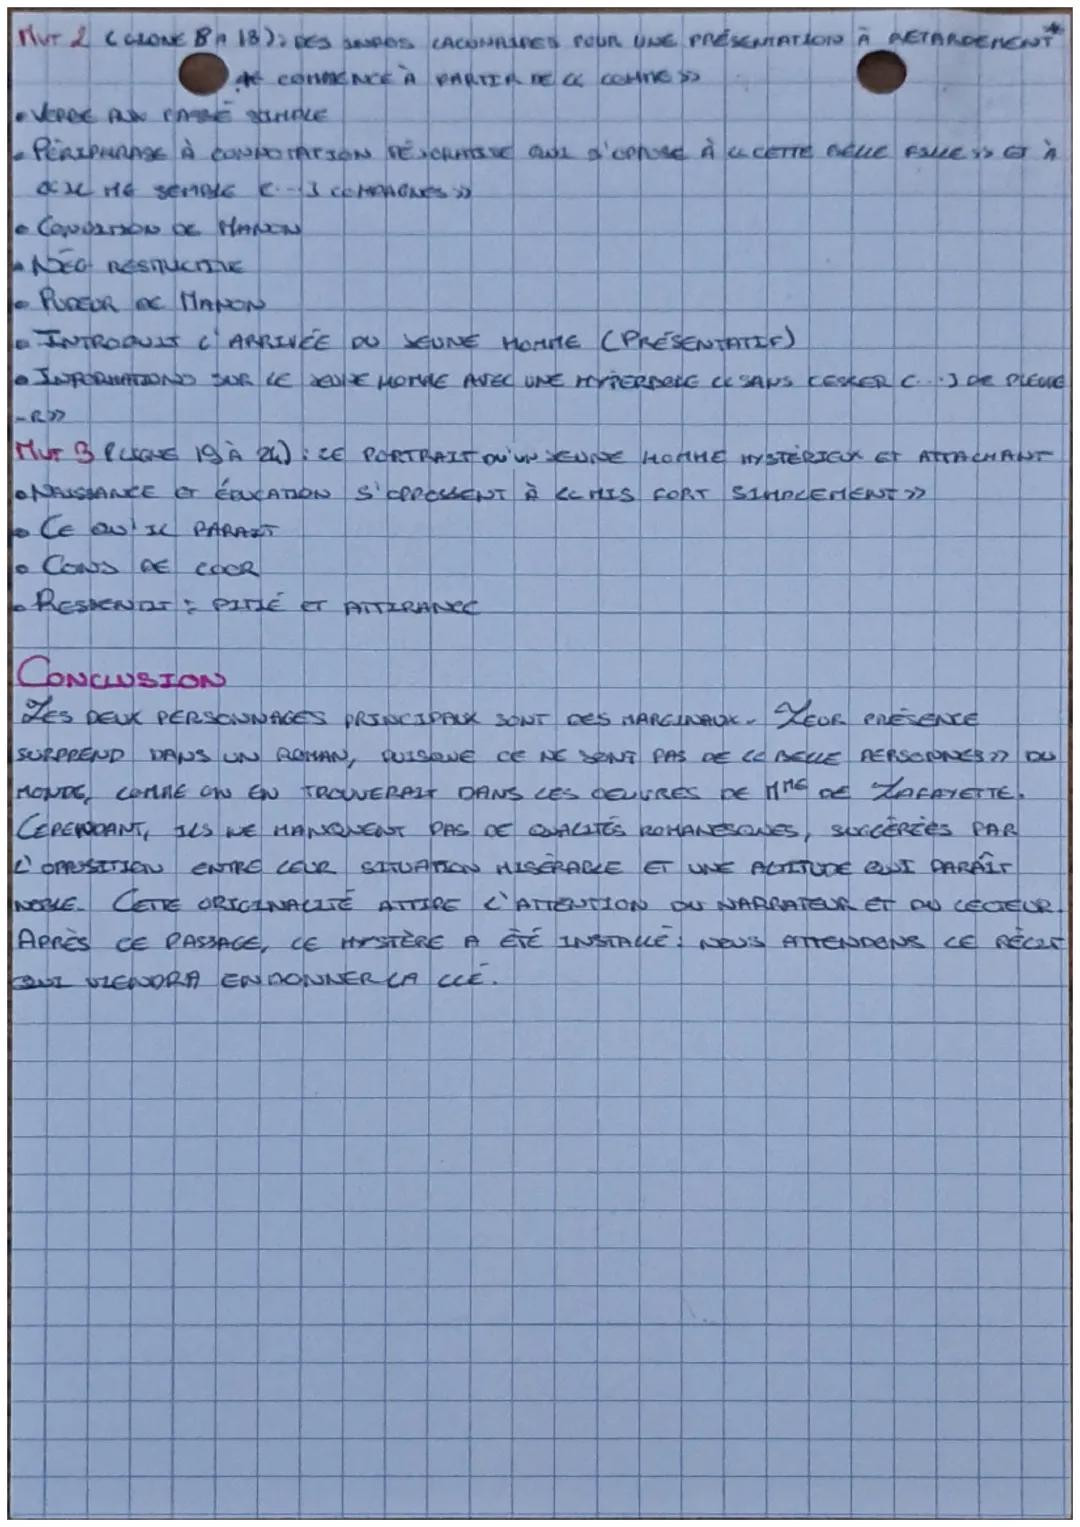 MVT 2 (LIGNE 8 À 18) : DES INFOS LACUNAIRES POUR UNE PRÉSENTATION À RETARDEMENT *
* COMMENCE À PARTIR DE « COMME »
• VERBE AU PASSÉ SIMPLE
• PÉRIPHRASE À CONNOTATION PÉJORATIVE QUI S'OPPOSE À « CETTE BELLE FILLE » ET À
« IL ME SEMBLE [...] COMPAGNES »
• CONDITION DE MANON
• NÉG RESTRICTIVE
• PUDEUR DE MANON
• INTRODUIT L'ARRIVÉE DU JEUNE HOMME (PRÉSENTATIF)
• INFORMATIONS SUR LE JEUNE HOMME AVEC UNE HYPERBOLE « SANS CESSER [...] DE PLEURE
-R »
MVT 3 (LIGNE 19 À 24) : LE PORTRAIT D'UN JEUNE HOMME MYSTÉRIEUX ET ATTACHANT
• NAISSANCE ET ÉDUCATION S'OPPOSENT À « MIS FORT SIMPLEMENT »
• CE QU'IL PARAIT
• COUP DE COEUR
• RESSENTIT : PITIÉ ET ATTIRANCE
CONCLUSION
LES DEUX PERSONNAGES PRINCIPAUX SONT DES MARGINAUX. LEUR PRÉSENCE
SURPREND DANS UN ROMAN, PUISQUE CE NE SONT PAS DE « BELLE PERSONNES » DU
MONDE, COMME ON EN TROUVERAIT DANS LES OEUVRES DE MME DE LAFAYETTE.
CEPENDANT, ILS NE MANQUENT PAS DE QUALITÉS ROMANESQUES, SUGGÉRÉES PAR
L'OPPOSITION ENTRE LEUR SITUATION MISÉRABLE ET UNE ATTITUDE QUI PARAÎT
NOBLE. CETTE ORIGINALITÉ ATTIRE L'ATTENTION DU NARRATEUR ET DU LECTEUR.
APRÈS CE PASSAGE, LE MYSTÈRE A ÉTÉ INSTALLÉ : NOUS ATTENDONS LE RÉCIT
QUI VIENDRA EN DONNER LA CLÉ.